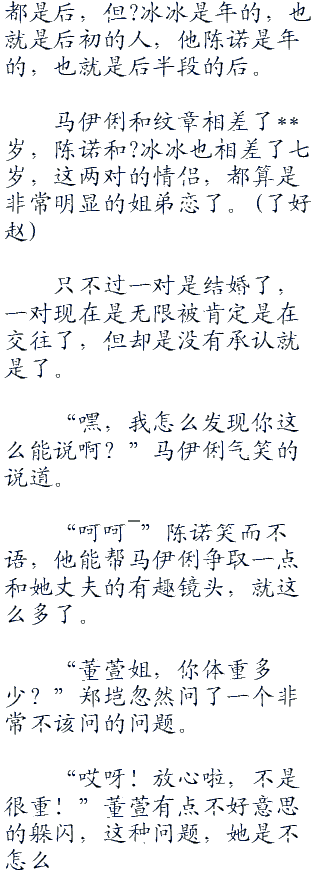 都是后，但?冰冰是年的，也
就是后初的人，他陈诺是年
的，也就是后半段的后。
马伊俐和纹章相差了**
岁，陈诺和?冰冰也相差了七
岁，这两对的情侣，都算是
非常明显的姐弟恋了。(了好
赵)
只不过一对是结婚了，
一对现在是无限被肯定是在
交往了，但却是没有承认就
是了。
“嘿，我怎么发现你这
么能说啊？”马伊俐气笑的
说道。
“呵呵¯”陈诺笑而不
语，他能帮马伊俐争取一点
和她丈夫的有趣镜头，就这
么多了。
“董萱姐，你体重多
少？”郑垲忽然问了一个非
常不该问的问题。
“哎呀！放心啦，不是
很重！”董萱有点不好意思
的躲闪，这种问题，她是不
怎么